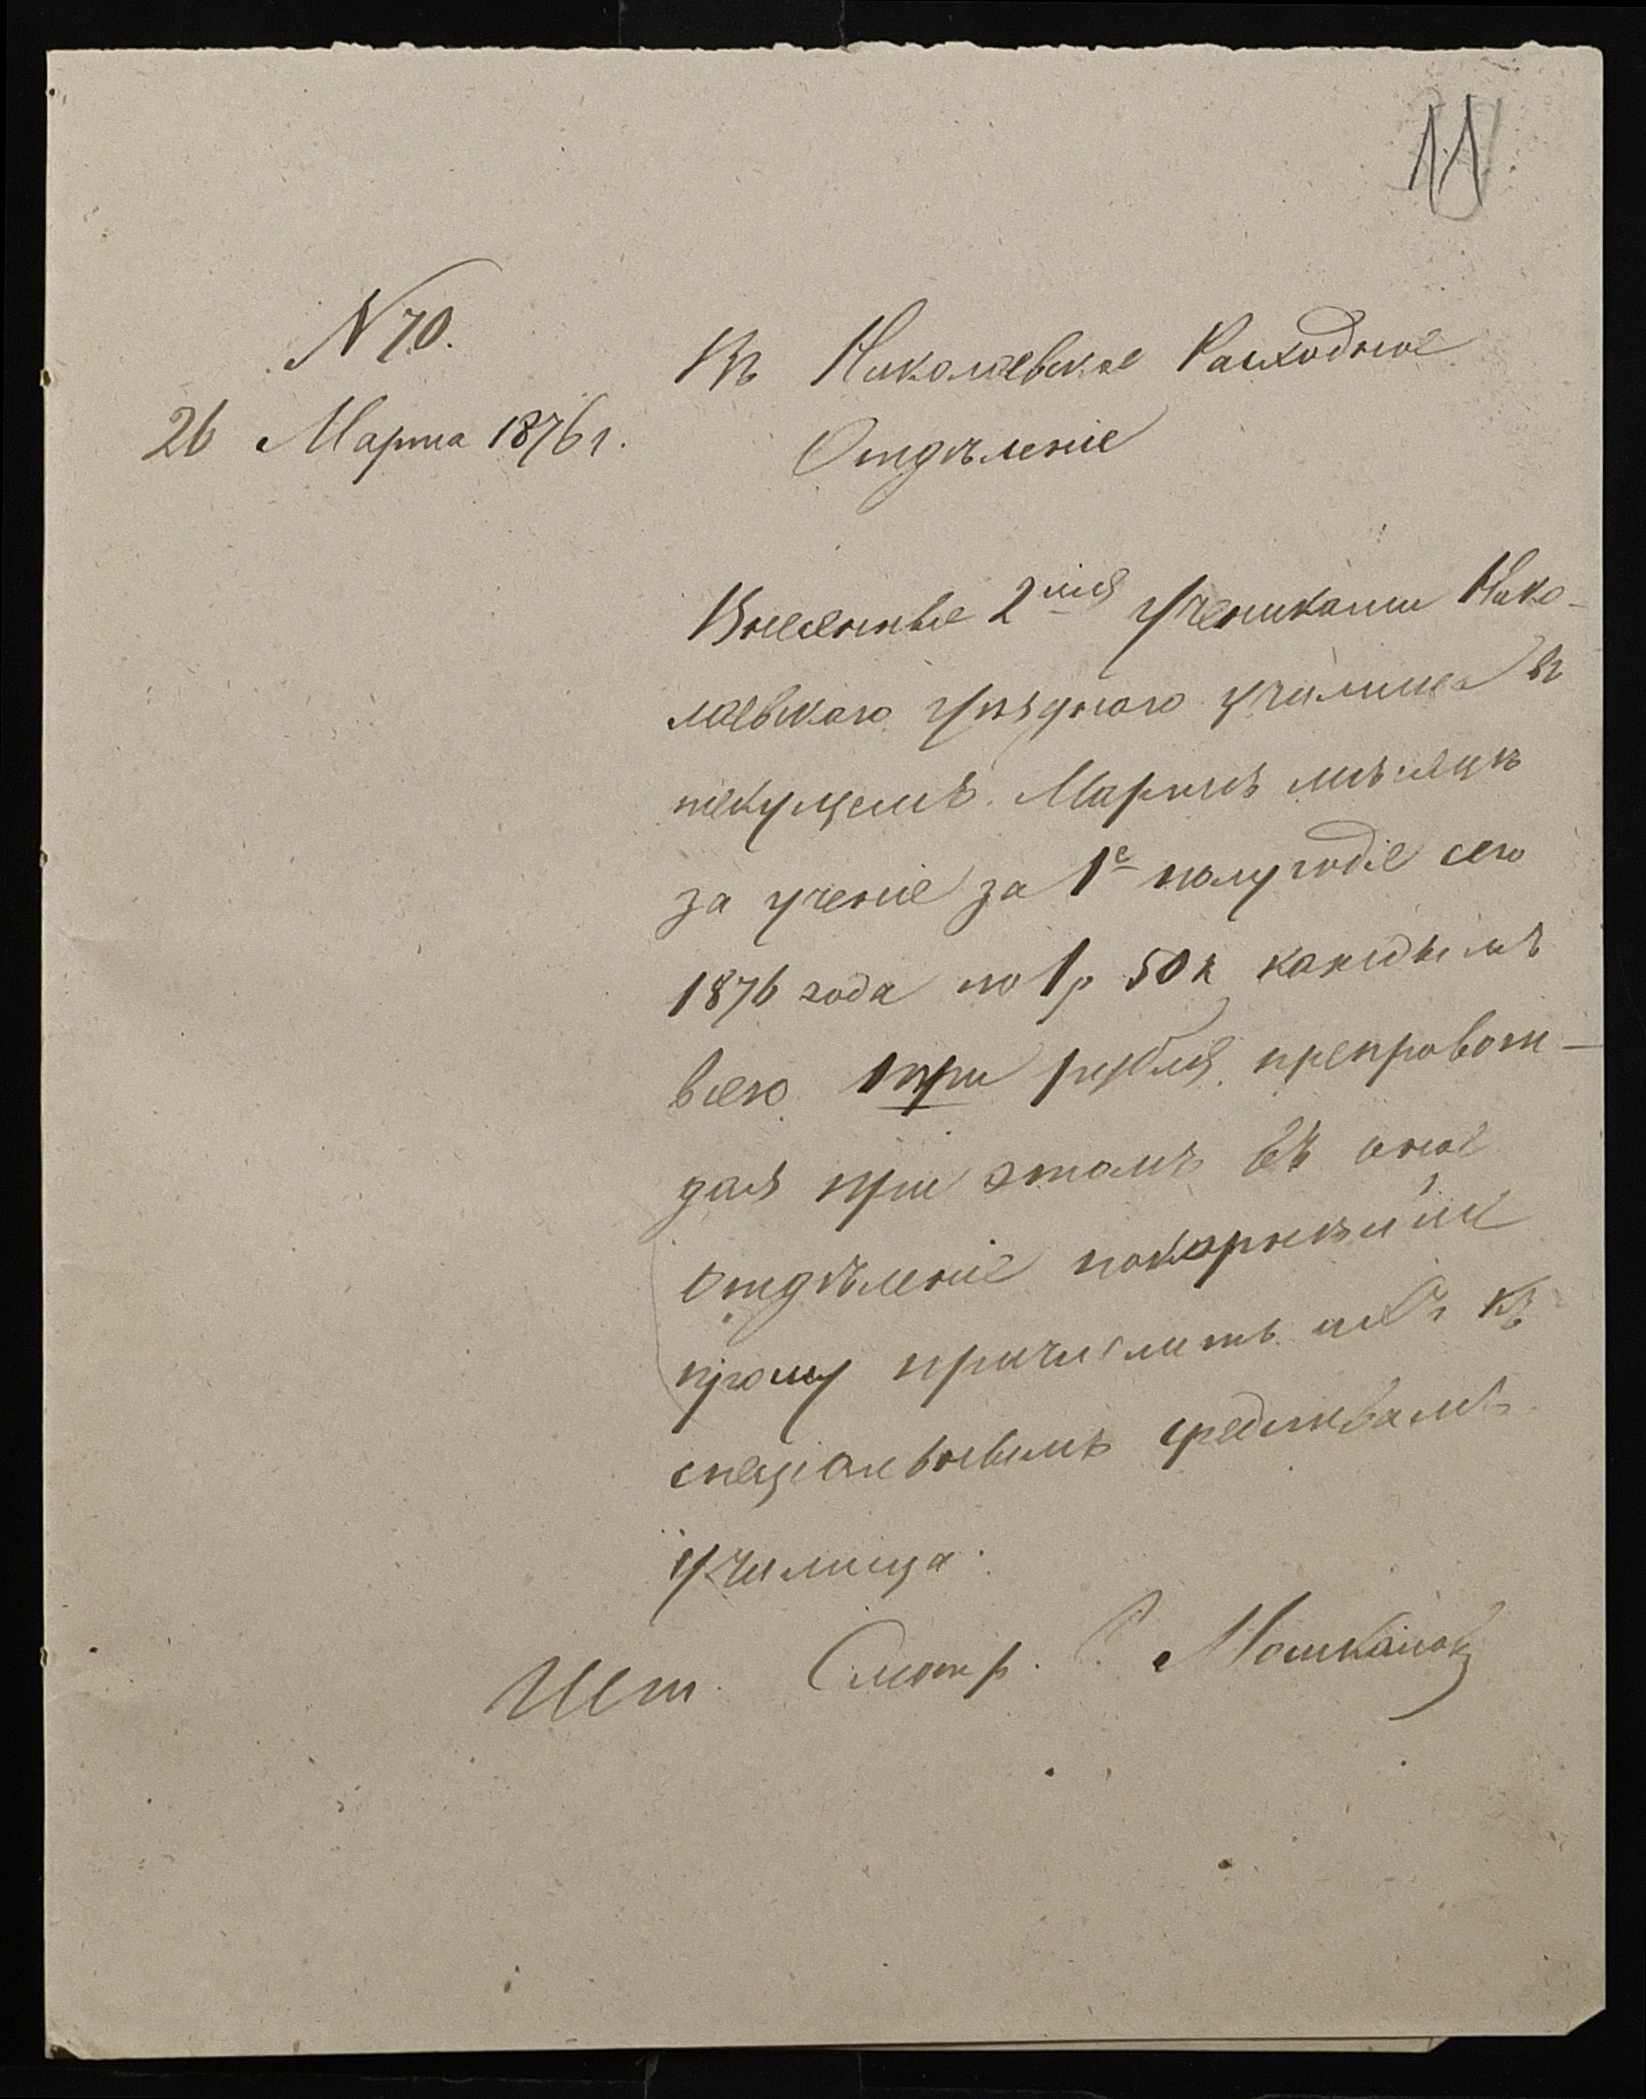 11
N 70.
26 Марта 1876 г.
Въ Николаевское Расходное
Отдѣленіе
Внесенные 2мя учениками Нико-
лаевскаго уѣзднаго училища въ
текущемъ Мартѣ мѣсяцѣ
за ученіе за 1е полугодіе сего
1876 года по 1 р 50 к каждымъ
всего три рубля препровож-
дая при этомъ въ оное
Отдѣленіе покорнѣйше
прошу причислить ихъ къ
спеціальнымъ средствамъ
училища.
Шт. Смотр. С. Мошкаловъ